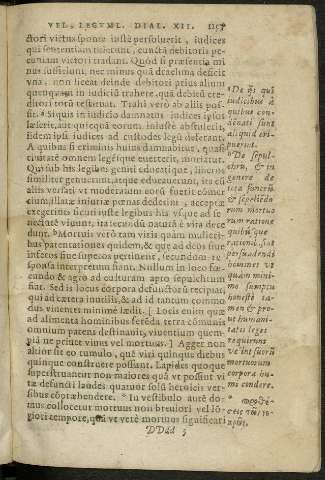 VEL, LEGVML. DIAL. XII. 1157
ctori victus sponte iustè persoluerit, iudices
qui sententiam tulerunt, cunctà debitoris pe-
cuniam victori tradant. Quòd si præsentia mi-
nus suffitiunt, nec minus quà drachma deficit
vna: non liceat deinde debitori prius alium
quenquam in iudicium trahere, quã debitũ cre-
ditori totũ restituat. Trahi verò ab aliis pos-
sit. Siquis in iudicio damnatus iudices ipsos
læserit, aut quicquã eorum iniuste abstulerit,
iidem ipsi iudices ad custodes legũ deferant.
A quibus si criminis huius damnabitur, quasi
ciuitatē omnem legesque euerterit, moriatur.
Quisub his legibus geniti educatique, liberos
similiter genuerunt, atque educauerunt, ita cũ
aliis versati vt moderatum eorũ fuerit cõmer
cium, illatæ iniuriæ pœnas dederint, acceptæ
exegerint: sicuti iuste legibus his vsque ad se
nectutē vixerint, ita secundũ naturã è vita dece
dunt. Mortuis verò tam viris quàm mulieri-
bus parentationes quidem, & quæ ad deos siue
inferos siue superos pertinent, secundum re
sponsa interpretum fiant. Nullum in loco fœ-
cundo & agro ad culturam apto sepulchrum
fiat. Sed is locus corpora defunctorũ recipiat,
qui ad cætera inutilis, & ad id tantum commo
dus viuentes minimè lædit. [ Locis enim quæ
ad alimenta hominibus ferēda terra cõmunis
omnium parens destinauit, viuentium quem-
piã ne priuet viuus vel mortuus. ] Agger non
altior sit eo tumulo, quē viri quinque diebus
quinque construere possunt. Lapides quoque
superstruantur non maiores quã vt possint vi
tæ defuncti laudes quatuor solũ heroicis ver-
sibus cõprehendere. * In vestibulo autē do-
mus collocetur mortuus non breuiori vel lõ-
giori tempore, quã vt verè mortuus significari
DDdd 5
De iis qui
iudicibus à
quibus con-
dēnati sunt
aliquid eri-
puerint.
De sepul-
chris, & in
genere de
tota funerũ
& sepeliēdo
rum mortuo
rum ratione
quibusque